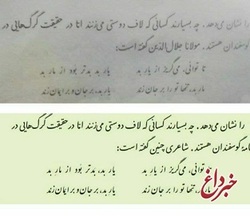 را نشان می‌دهد. چه بسیارند کسانی که لاف دوستی می‌زنند اما در حقیقت گرگ‌هایی در
گوسفندان هستند. مولانا جلال‌الدین گفته است:
تا توانی، می‌گریز از یار بد
یار بد، بدتر بود از مار بد
مار بد، تنها تو را بر جان زند
یار بد، بر جان و بر ایمان زند
را نشان می‌دهد. چه بسیارند کسانی که لاف دوستی می‌زنند اما در حقیقت گرگ‌هایی در
گوسفندان هستند. شاعری چنین گفته است:
تا توانی، می‌گریز از یار بد
یار بد، بدتر بود از مار بد
تنها تو را بر جان زند
یار بد، بر جان و بر ایمان زند
خبرداغ